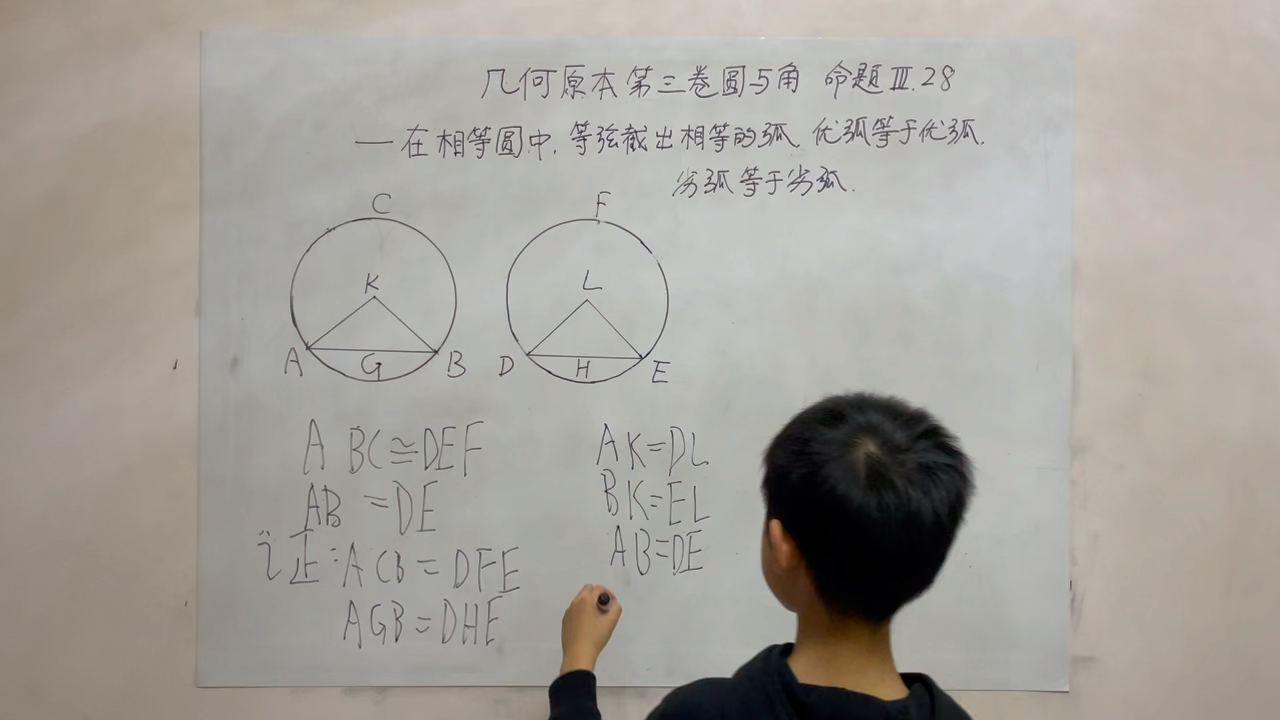 几何原本第三卷圆与角 命题Ⅲ.28
—在相等圆中,等弦截出相等的弧,优弧等于优弧,
劣弧等于劣弧.
C
F
K
L
A G B
D H E
ABC≌DEF
AB=DE
证:ACB=DFE
AGB=DHE
AK=DL
BK=EL
AB=DE